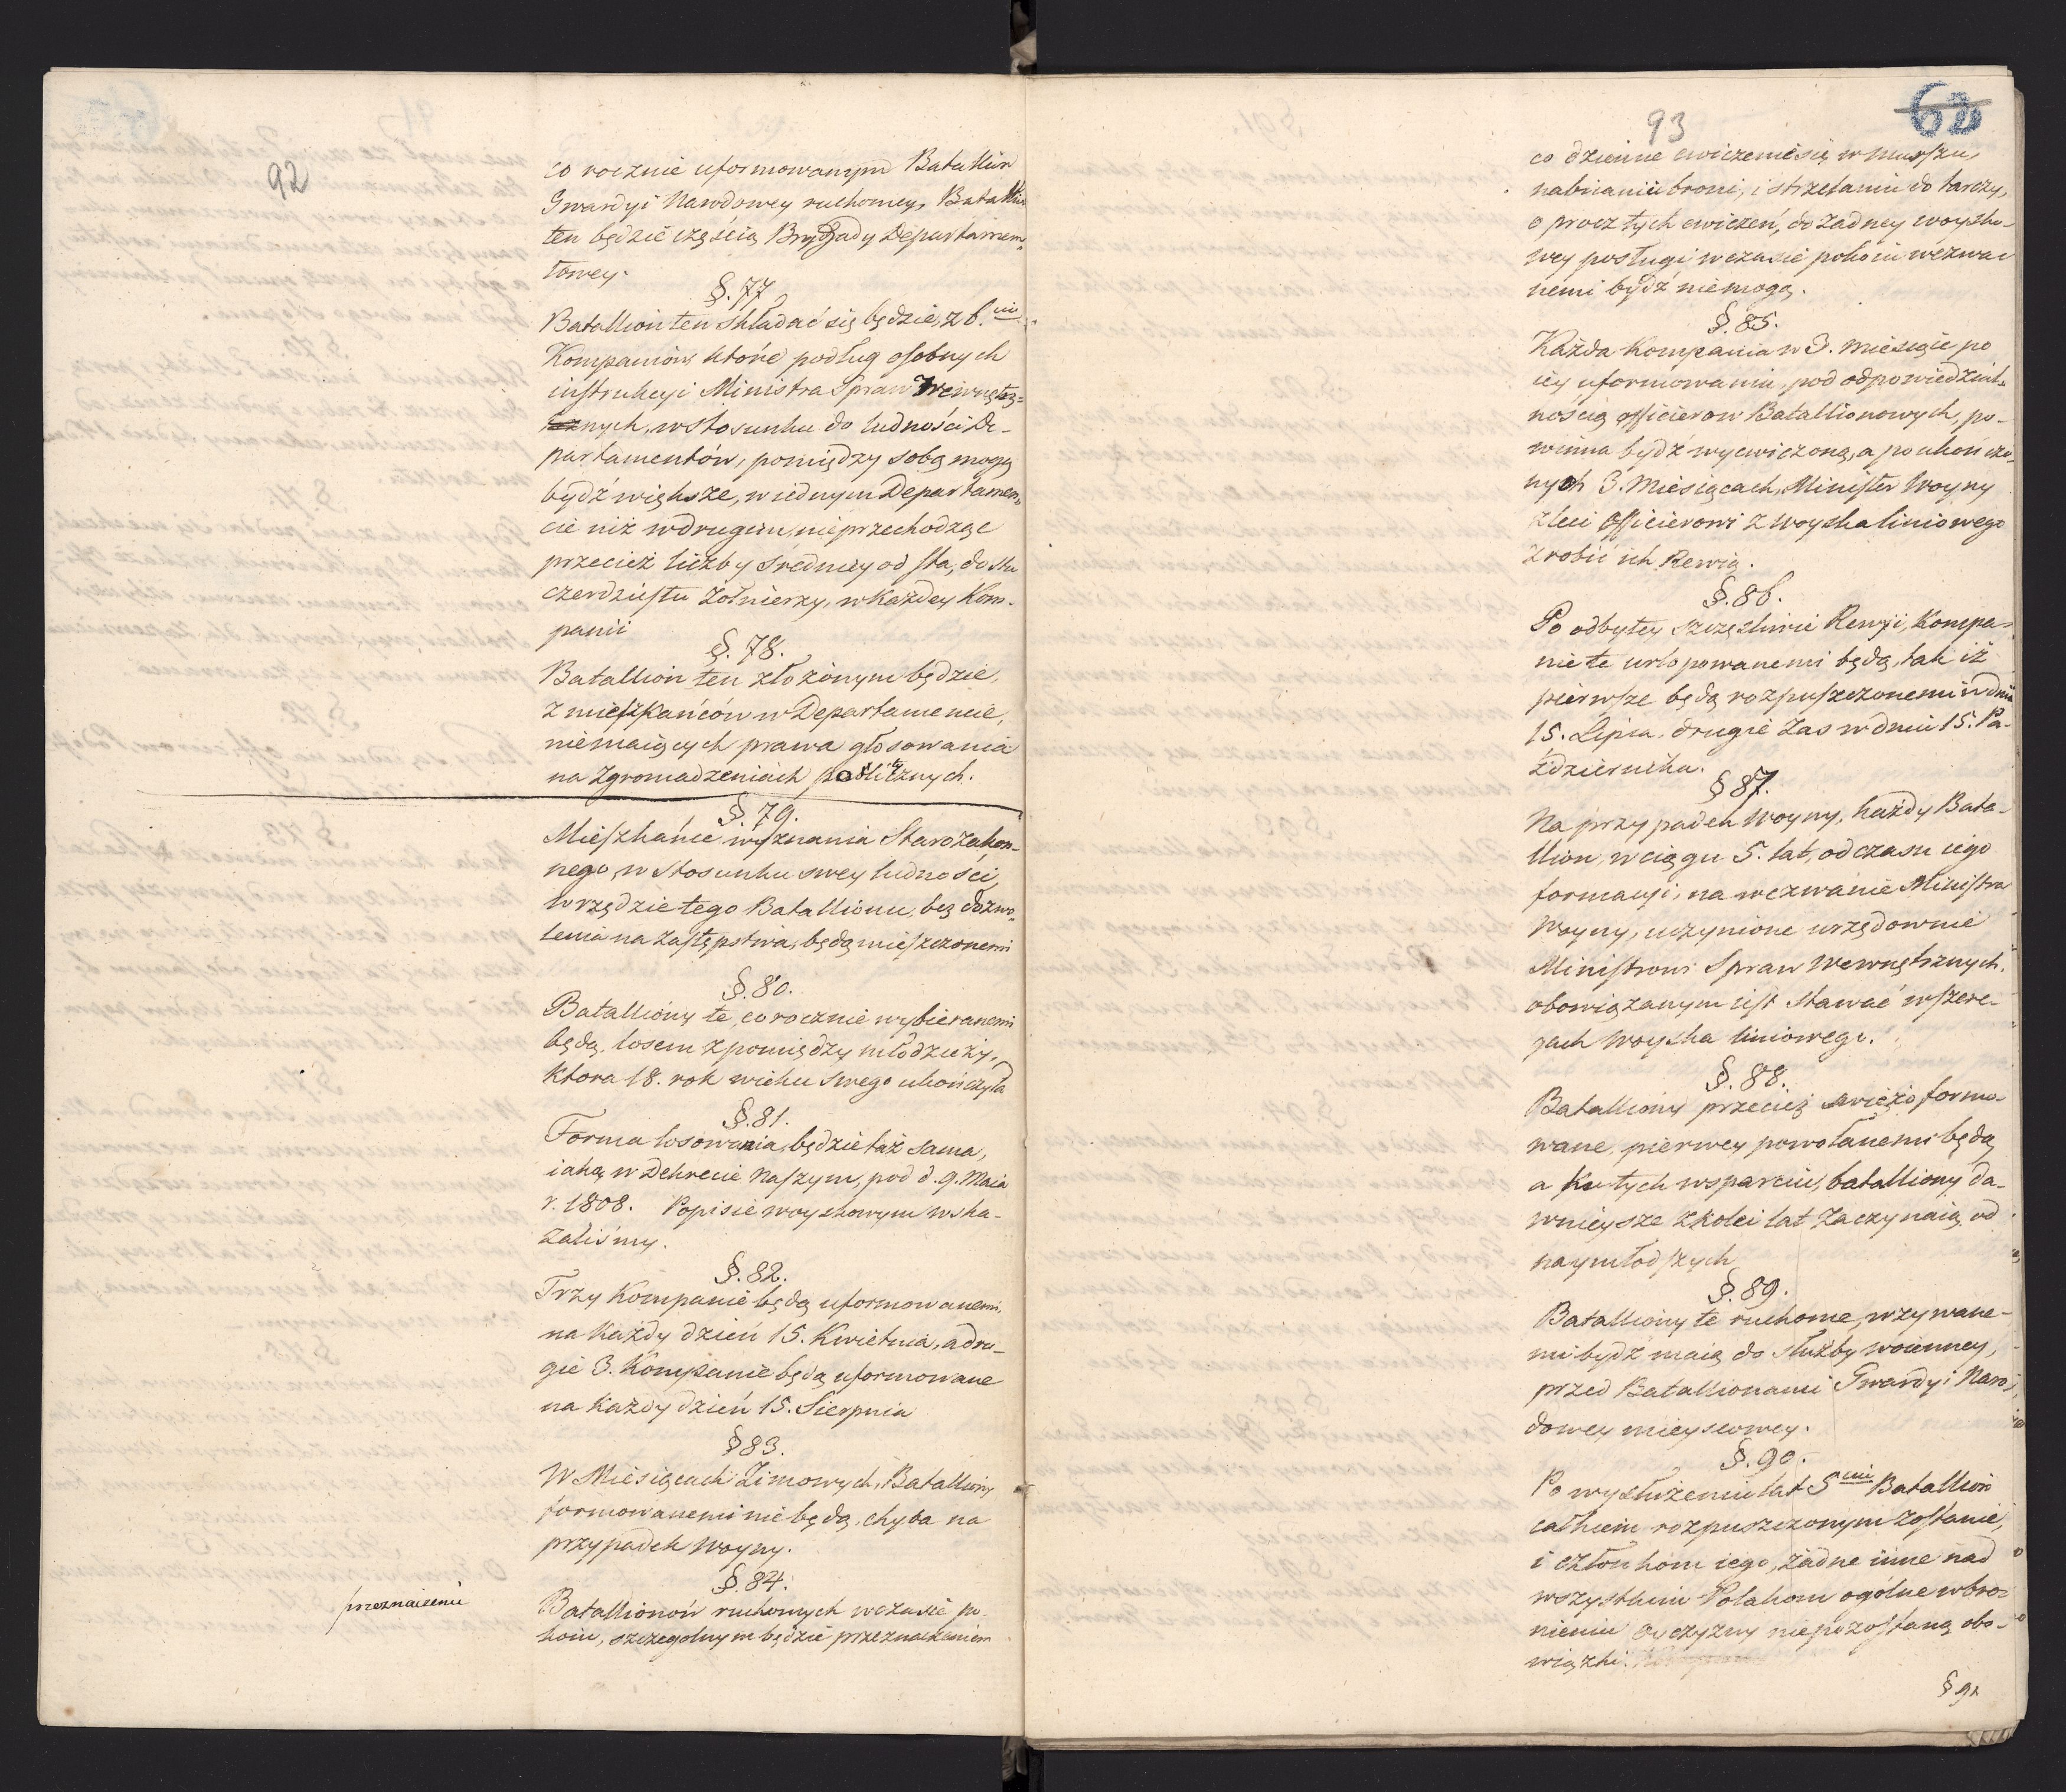 92
co rocznie uformowanym Batallion
Gwardyi Narodowey ruchomey, Batallion
ten będzie częścią Brygady Departamen„
towey.
§. 77
Batallion ten składać się będzie, z 6.ciu
Kompaniów które podług osobnych
instrukcyi Ministra Spraw Wewnętrz=
nych, w stosunku do ludności De-
partamentów, pomiędzy sobą mogą
bydź większe, w iednym Departamen„
cie niż w drugim, nieprzechodząc
przecież liczby średniey od sta, do stu
czerdziestu Żołnierzy, w Każdey Kom-
panii
§. 78.
Batallion ten złożonym będzie,
z mieszkańców w Departamencie,
niemaiących prawa głosowania
na Zgromadzeniach politycznych.
§. 79.
Mieszkańce wyznania Starozakon-
nego, w stosunku swey ludności,
w rzędzie tego Batallionu, bez dozwo„
lenia na zastępstwa, będą mieszczonemi
§. 80.
Batalliony te, co rocznie wybieranemi
będą, losem z pomiędzy młodzieży,
Ktora 18. rok wieku swego ukończyła
§. 81.
Forma losowania, będzie taż sama,
iaką w Dekrecie Naszym, pod d. 9. Maia
r. 1808. Popisie woyskowym wska-
zaliśmy.
§. 82.
Trzy Kompanie będą uformowanemi
na Każdy dzień 15. Kwietnia, a dru-
gie 3. Kompanie będą uformowane
na Każdy dzień 15. Sierpnia
§ 83.
W Miesiącach Zimowych, Batalliony
formowanemi nie będą, chyba na
przypadek Woyny.
§. 84.
Batallionów ruchomych w czasie po-
koiu, szczegolnym będzie przeznaczeniem
przeznaczeniu
93
co dzienne cwiczenie się w Marszu,
nabicaniu broni, i strzelaniu do tarczy,
o procz tych cwiczeń, do żadney woysko-
wey posługi w czasie pokoiu wezwa-
nemi bydź niemogą.
§. 85.
Każda Kompania w 3. Miesiące po
iey uformowaniu, pod odpowiedzial„
nością officierow Batallionowych, po-
winna bydź wycwiczoną, a po ukończo„
nych 3. Miesiącach, Minister Woyny
zleci Officierowi z Woyska liniowego
zrobić ich Rewią.
§. 86.
Po odbytey szczęsliwie Rewyi, Kompa-
nie te urlopowanemi będą, tak iż
pierwsze będą rozpuszczonemi w dniu
15. Lipca, drugie Zas w dniu 15. Pa-
ździernika.
§ 87.
Na przypadek Woyny, każdy Bata-
llion, w ciągu 5. lat, od czasu iego
formacyi, na wezwanie Ministra
Woyny, uczynione urzędownie
Ministrowi Spraw Wewnętrznych,
obowiązanym iest stawać w szere-
gach Woyska liniowego.
§. 88.
Batalliony przecież swieżo formo-
wane, pierwey powołanemi będą
a Ku tych wsparciu, batalliony da-
wnieysze z kolei lat Zaczynaią od
naymłodszych
§. 89.
Batalliony te ruchome, wzywane-
mi bydź maią do służby woienney,
przed Batallionami Gwardyi Naro-
dowey mieyscowey.
§. 90.
Po wysłużeniu lat 5ciu Batallion
całkiem rozpuszczonym Zostanie,
i członkom iego, żadne inne nad
wszystkim Polakom ogólne w bro-
nieniu Oyczyzny niepozostaną obo-
wiązki.
§ 91